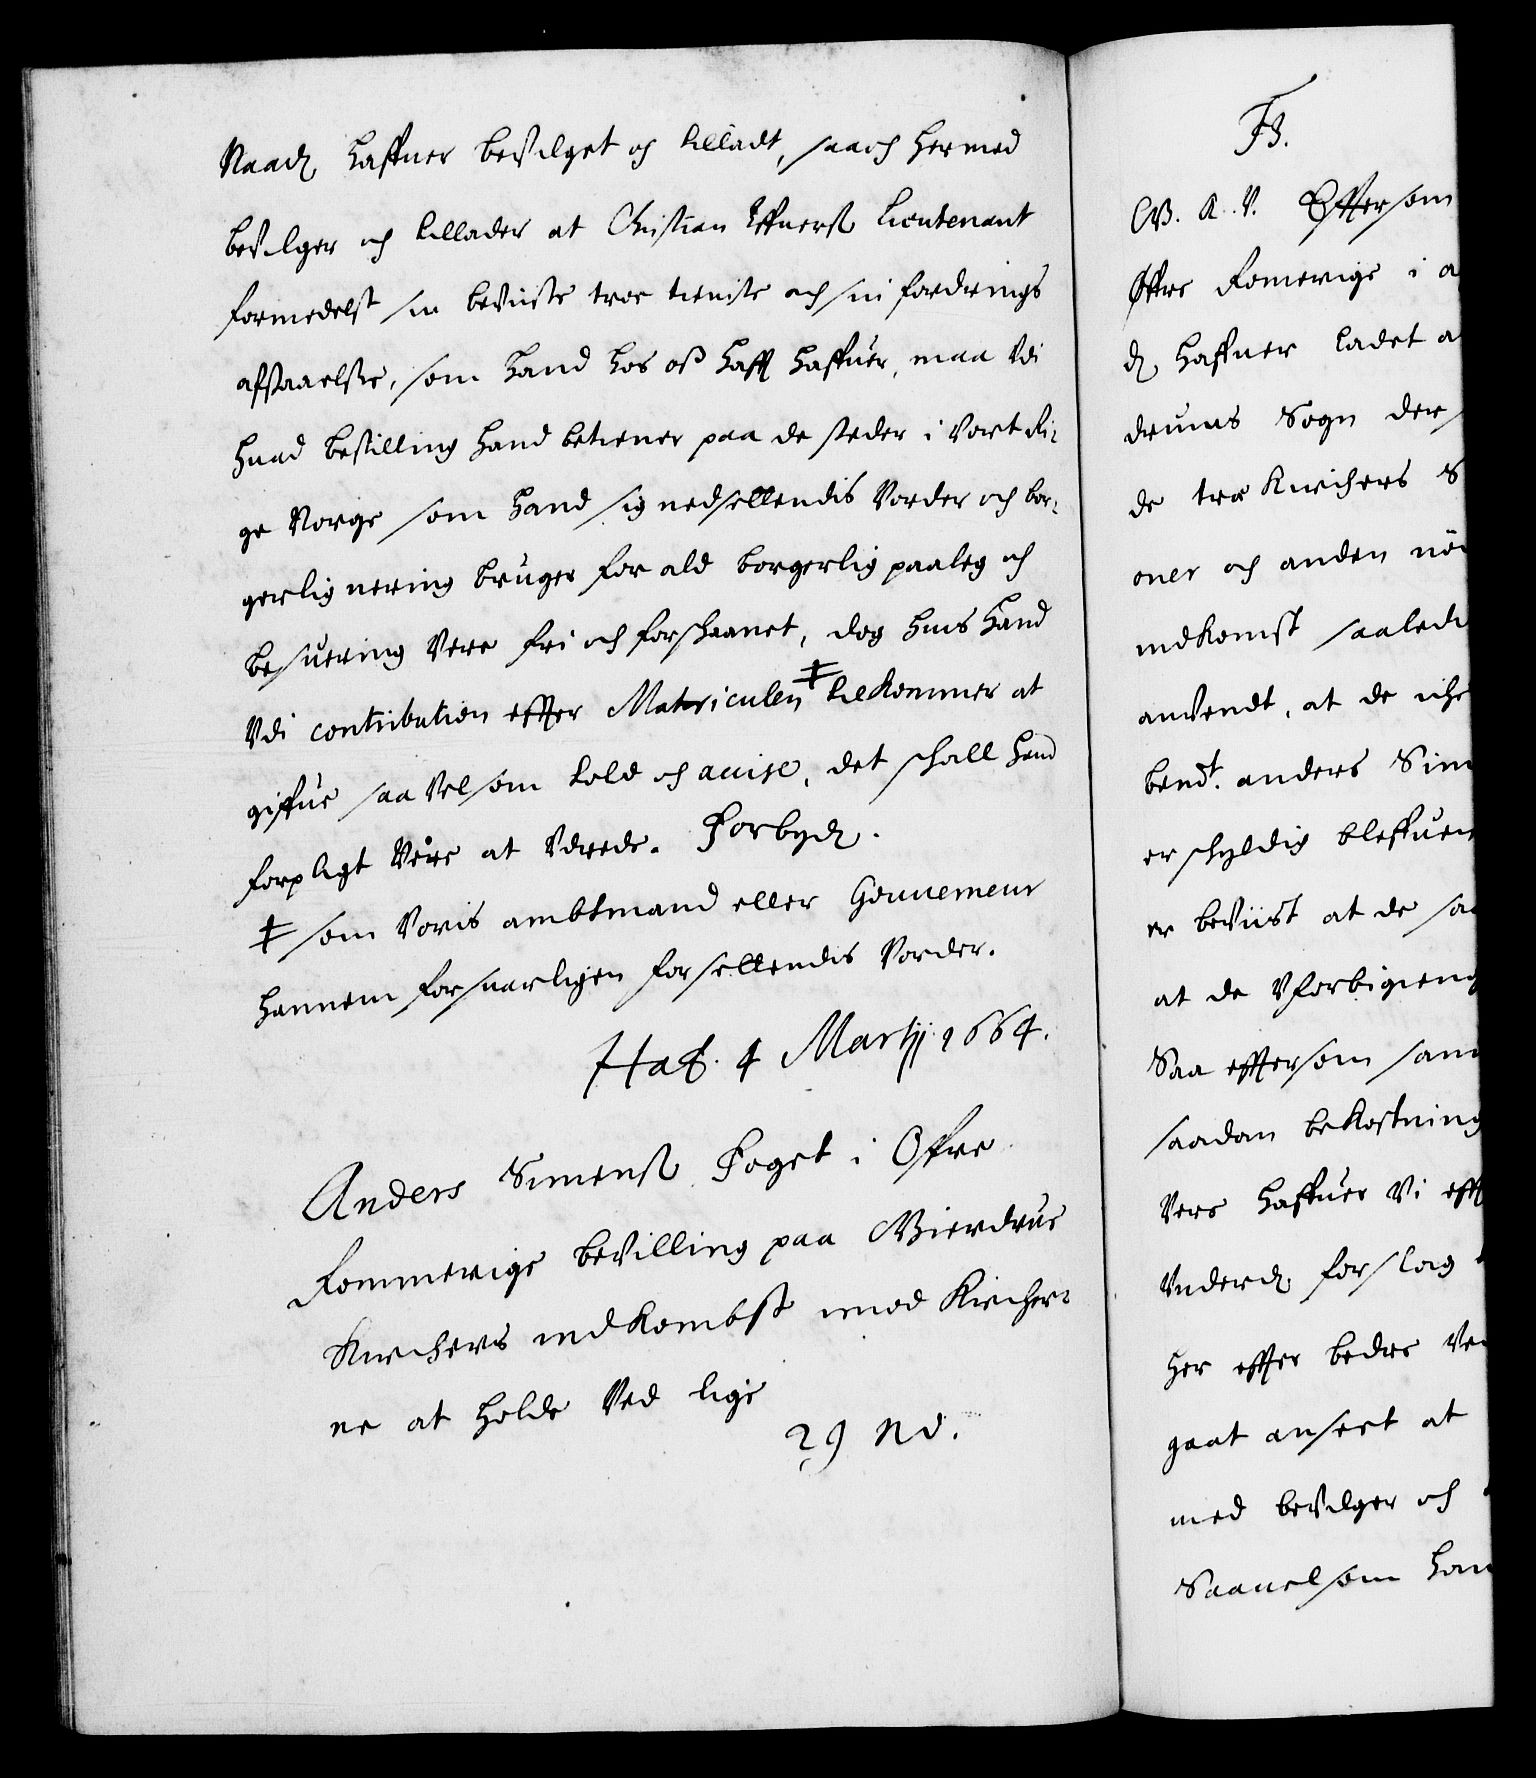 Naade haffuer bevilget och tilladt, saa och hermed
bevilger och tillader at Christian Effuerß Lieutenant
formedelst sin beviiste troe tieniste och sin fordrings
afstaaelse, som hand hos oß hafft haffuer, maa Udi
huad bestilling hand betiener paa de steder i Vort Ri-
ge Norge som hand sig nedsettendis Vorder och bor-
gerlig nering bruger for ald borgerlig paaleg och
besuering Vere fri och forskaanet, dog huis hand
Udi contribution effter Matriculen ‡ tilkommer at
giffue saa Vel som told och accise, det schall hand
forpligt Vere at Udrede. Forbyd.
‡ som Voris ambtmand eller Gouuerneur
hannem forsuarligen forsettendis Vorder.
Haf. 4 Martij 1664.
Anders Simenß Foget i Ofre
Rommerige bevilling paa
Kirchers indkombst imod Kircher-
ne at holde Ved lige
29 No.
F3.
C V. A. V. Efftersom
Øffre Romerige i a
d. haffuer ladet a
Sogn der
de tre Kirchers S
oner och anden nö
indkomst saalede
anvendt, at de iche
bend.t anders Sim
er schyldig bleffuen
er beviist at de sa
at de Uforbigieng
Saa efftersom sam
saadan bekostning
Vere haffuer Vi efft
Underd. forslag
her effter bedre Ve
gaat anseet at
med bevilger och
Saauelsom han